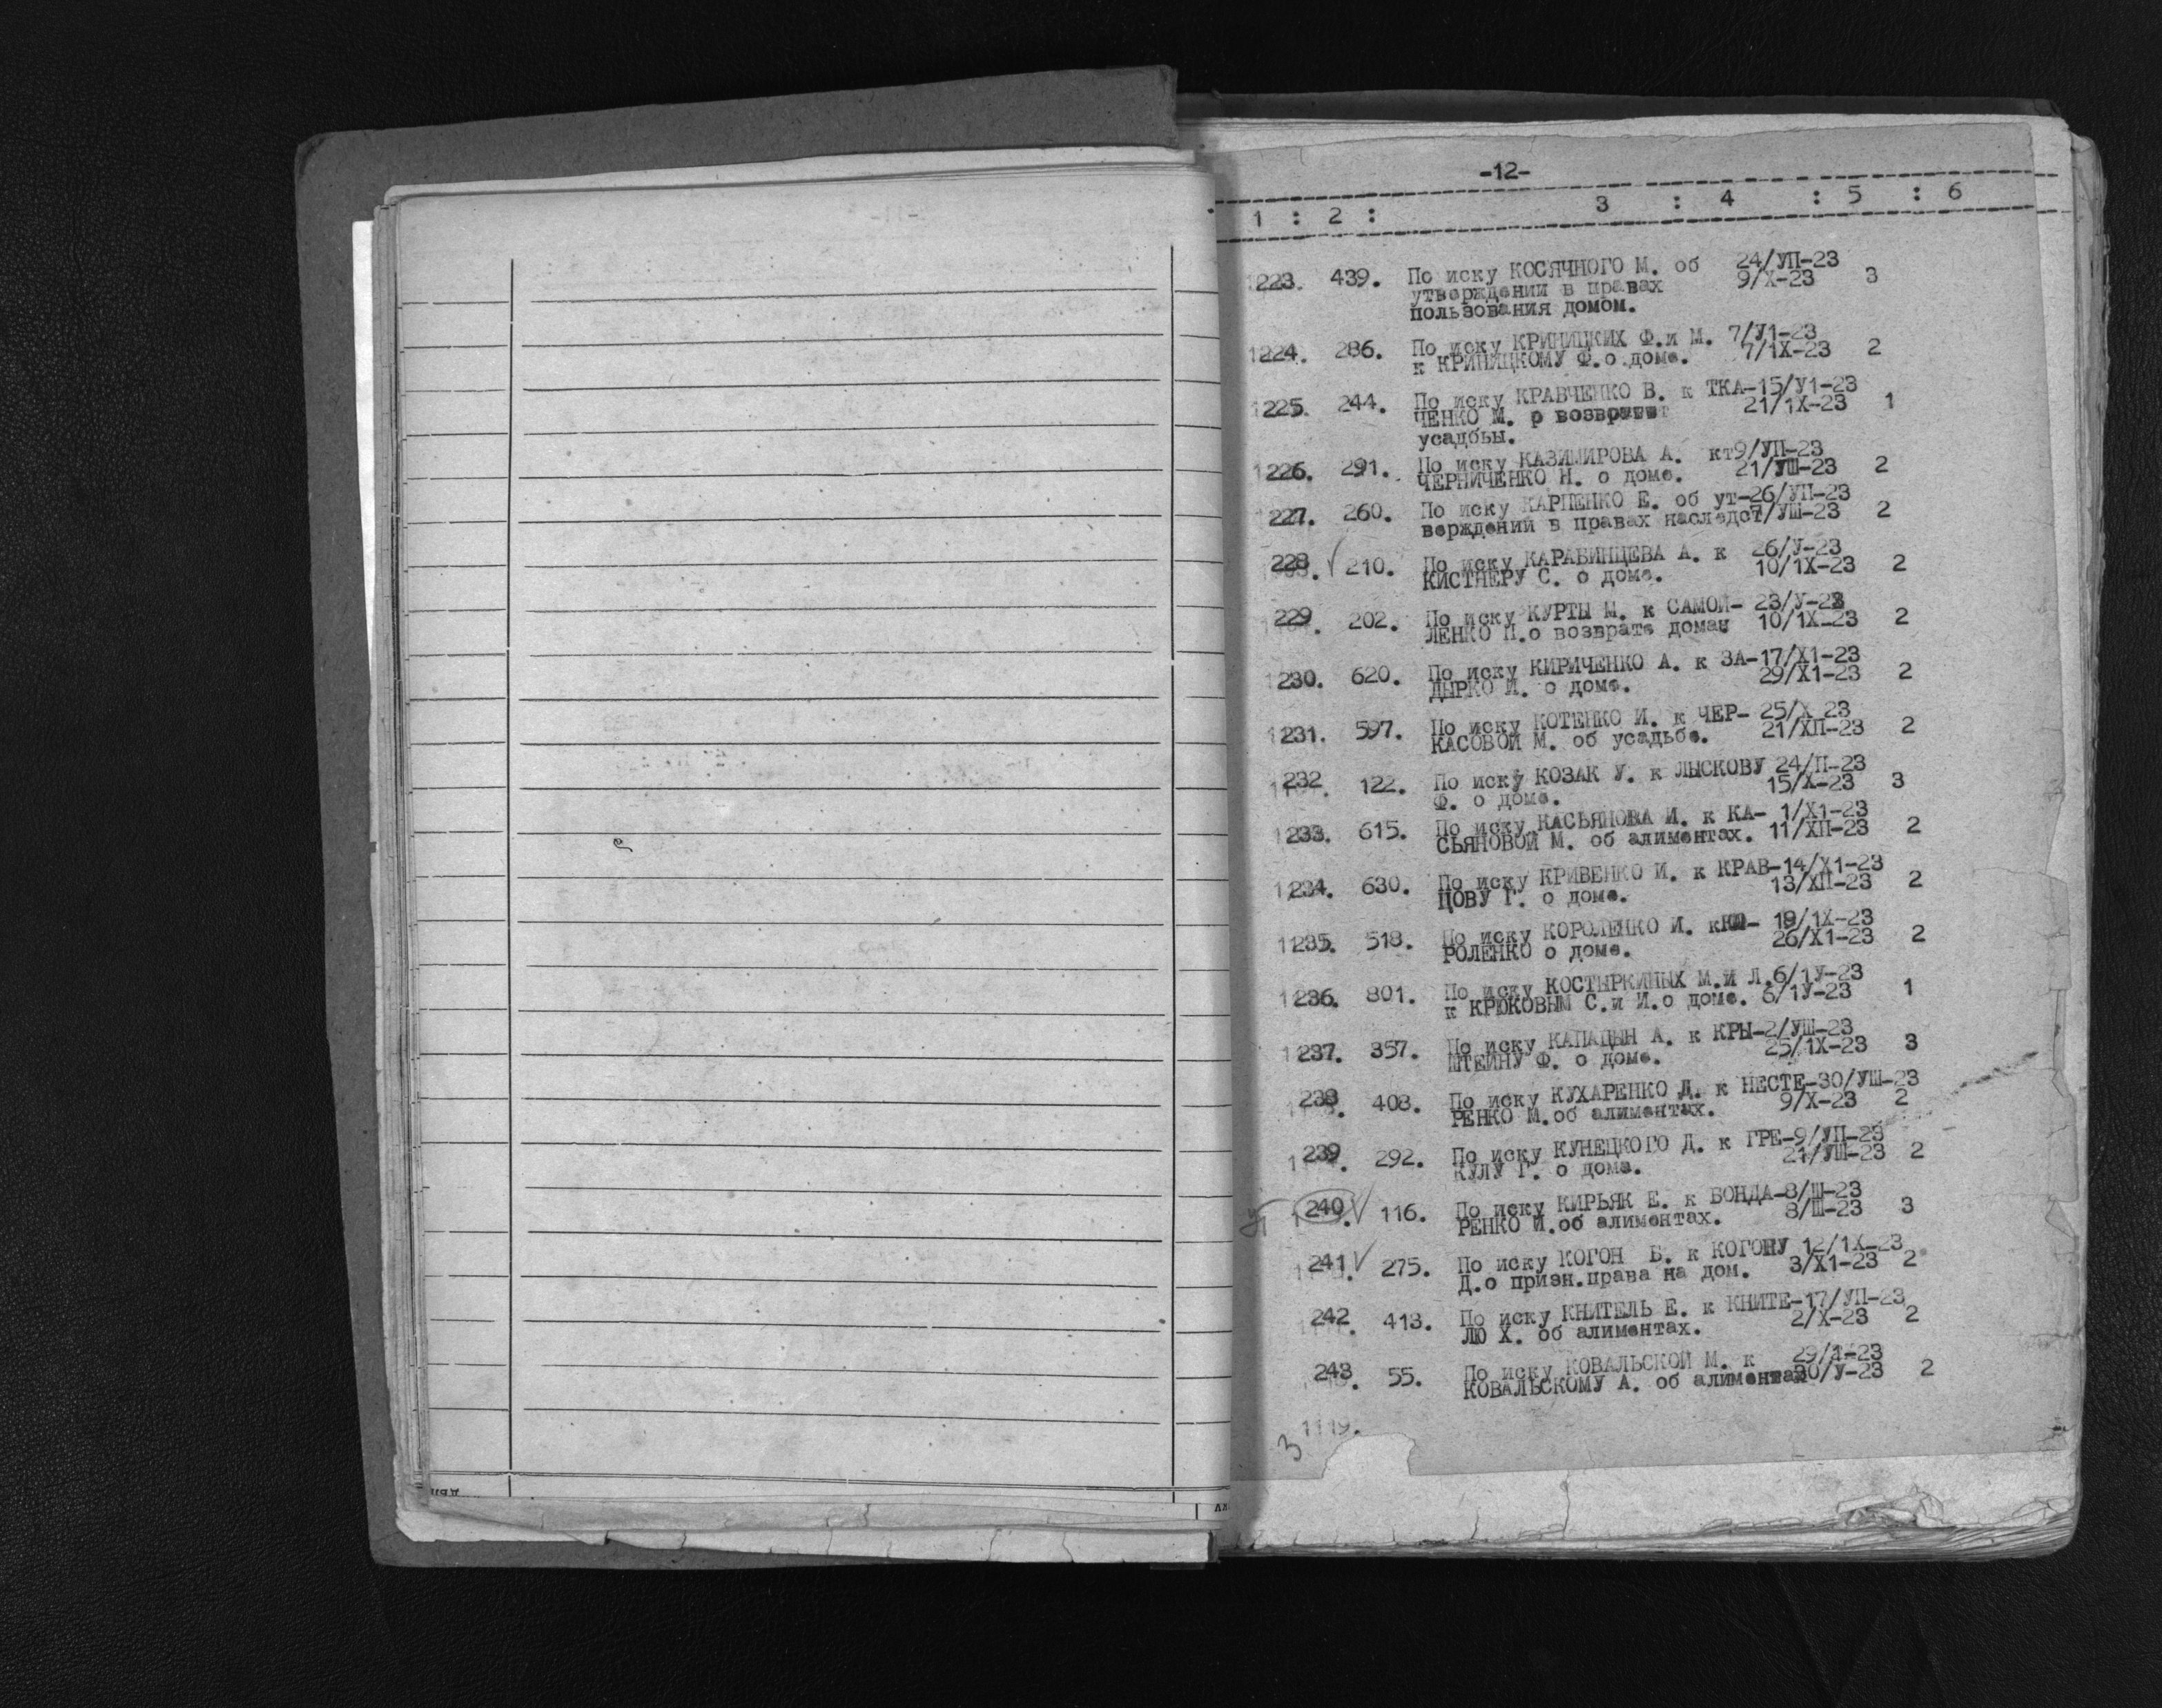 -12-
1 : 2 : 3 : 4 : 5 : 6
223. 439. По иску КОСЯЧНОГО М. об 24/УП-23
утверждении в правах 9/Х-23 3
пользования домом.
224. 286. По иску КРИНИЦКИХ Ф.и М. 7/У1-23
к КРИНИЦКОМУ Ф.о доме. 7/1Х-23 2
225. 244. По иску КРАВЧЕНКО В. к ТКА-15/У1-23
ЧЕНКО М. 21/1Х-23 1
усадьбы.
226. 291. По иску КАЗИМИРОВА А. кт9/УП-23
ЧЕРНИЧЕНКО Н. о доме. 21/УШ-23 2
227. 260. По иску КАРПЕНКО Е. об ут-26/УП-23
верждении в правах наследст7/УШ-23 2
228. 210. По иску КАРАБИНЦЕВА А. к 26/У-23
КИСТНЕРУ С. о доме. 10/1Х-23 2
229. 202. По иску КУРТЫ М. к САМОЙ- 23/У-23
ЛЕНКО П.о возврате дома 10/1Х-23 2
230. 620. По иску КИРИЧЕНКО А. к ЗА-17/Х1-23
ДЫРКО И. о доме. 29/Х1-23 2
231. 597. По иску КОТЕНКО И. к ЧЕР- 25/Х 23
КАСОВОЙ М. об усадьбе. 21/ХП-23 2
232. 122. По иску КОЗАК У. к ЛЫСКОВУ 24/П-23
Ф. о доме. 15/Х-23 3
233. 615. По иску КАСЬЯНОВА И. к КА- 1/Х1-23
СЬЯНОВОЙ М. об алиментах. 11/ХП-23 2
234. 630. По иску КРИВЕНКО И. к КРАВ-14/Х1-23
ЦОВУ Г. о доме. 13/ХП-23 2
235. 518. По иску КОРОЛЕНКО И. кКО- 19/1Х-23
РОЛЕНКО о доме. 26/Х1-23 2
236. 801. По иску КОСТЫРКИНЫХ М.и Л.6/1У-23
к КРЮКОВЫМ С.и И.о доме. 6/1У-23 1
237. 357. По иску КАПАЦЫН А. к КРЫ-2/УШ-23
ШТЕЙНУ Ф. о доме. 25/1Х-23 3
238. 408. По иску КУХАРЕНКО Д. к НЕСТЕ-30/УШ-23
РЕНКО М.об алиментах. 9/Х-23 2
239. 292. По иску КУНЕЦКОГО Д. к ГРЕ-9/УП-23
КУЛУ Г. о доме. 21/УШ-23 2
240. 116. По иску КИРЬЯК Е. к БОНДА-8/Ш-23
РЕНКО И.об алиментах. 8/Ш-23 3
241. 275. По иску КОГОН Б. к КОГОНУ 12/1Х-23
Д.о призн.права на дом. 3/Х1-23 2
242. 413. По иску КНИТЕЛЬ Е. к КНИТЕ-17/УП-23
ЛЮ Х. об алиментах. 2/Х-23 2
243. 55. По иску КОВАЛЬСКОЙ М. к 29/1-23
КОВАЛЬСКОМУ А. об алиментах30/У-23 2
1119.
3